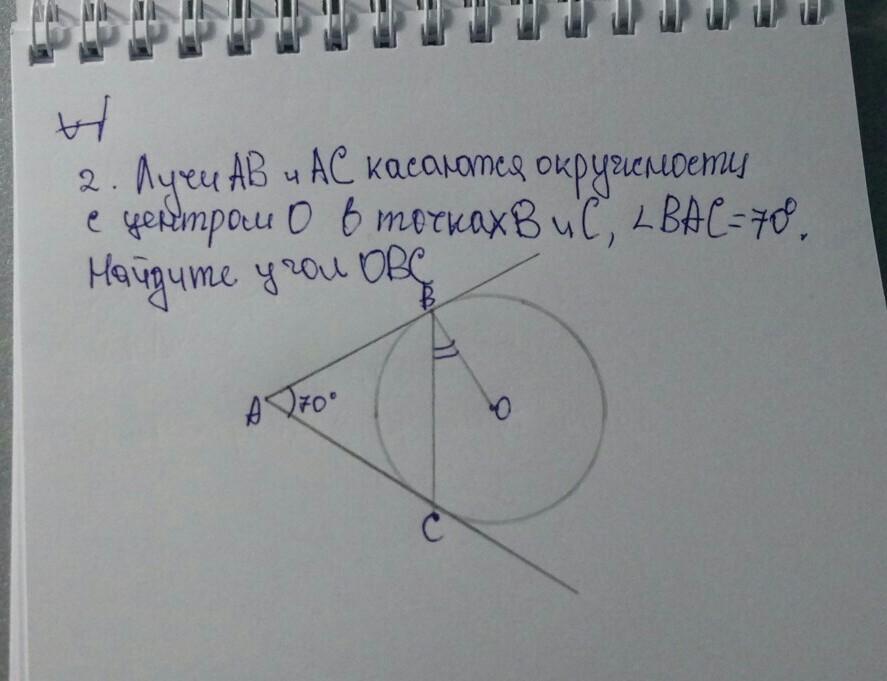 2. Лучи AB и AC касаются окружности
с центром O в точках B и C, ∠BAC=70°.
Найдите угол OBC
B
A
70°
O
C